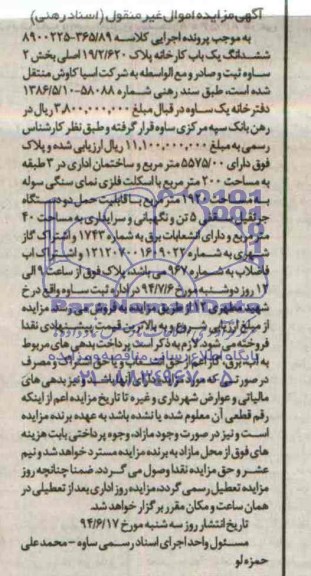 آگهی مزایده اموال غیر منقول (اسناد رهنی)
به موجب پرونده اجرایی کلاسه ۳۶۵/۸۹-۸۹۰۰۲۲۵
ششدانگ یک باب کارخانه پلاک ۱۹/۲/۶۲۰ اصلی بخش ۲
ساوه ثبت و صادر و مع الواسطه به شرکت آسیا کاوش منتقل
شده است، طبق سند رهنی شماره ۵۸۰۸۸-۱۳۸۶/۵/۱۰
دفترخانه یک ساوه در قبال مبلغ ۳,۸۰۰,۰۰۰,۰۰۰ ریال در
رهن بانک سپه مرکزی ساوه قرار گرفته و طبق نظر کارشناس
رسمی به مبلغ ۱۱,۱۰۰,۰۰۰,۰۰۰ ریال ارزیابی شده و پلاک
فوق دارای ۵۵۷۵/۰۰ متر مربع و ساختمان اداری در ۲ طبقه
به مساحت ۲۰۰ متر مربع با اسکلت فلزی نمای سنگی سوله
به مساحت متر مربع با قابلیت حمل دو دستگاه
جرثقیل سقفی ۵ تن و نگهبانی و سرایداری به مساحت ۴۰
متر مربع و دارای انشعابات برق به شماره ۱۷۴۲ و اشتراک گاز
شهری به شماره ۱۲۱۲۰۷۰۰۱۶۰۹۰۲۲ و اشتراک آب
فاضلاب به شماره ۹۶۷ می باشد، پلاک فوق از ساعت ۹ الی
۱۲ روز دوشنبه مورخ ۹۴/۷/۶ در اداره ثبت ساوه واقع در خ
شهید مطهری از طریق مزایده به فروش می رسد. مزایده
از مبلغ ارزیابی شروع و به بالاترین قیمت پیشنهادی نقدا
فروخته می شود. لازم به ذکر است پرداخت بدهی های مربوط
به آب، برق، گاز اعم از حق انشعاب و یا حق اشتراک و مصرف
در صورتی که مورد مزایده دارای آنها باشد و نیز بدهی های
مالیاتی و عوارض شهرداری و غیره تا تاریخ مزایده اعم از اینکه
رقم قطعی آن معلوم شده یا نشده باشد به عهده برنده مزایده
است و نیز در صورت وجود مازاد، وجوه پرداختی بابت هزینه
های فوق از محل مازاد به برنده مزایده مسترد خواهد شد و نیم
عشر و حق مزایده نقدا وصول می گردد. ضمنا چنانچه روز
مزایده تعطیل رسمی گردد، مزایده روز اداری بعد از تعطیلی در
همان ساعت و مکان مقرر برگزار خواهد شد.
تاریخ انتشار روز سه شنبه مورخ ۹۴/۶/۱۷
مسئول واحد اجرای اسناد رسمی ساوه - محمد علی
حمزه لو